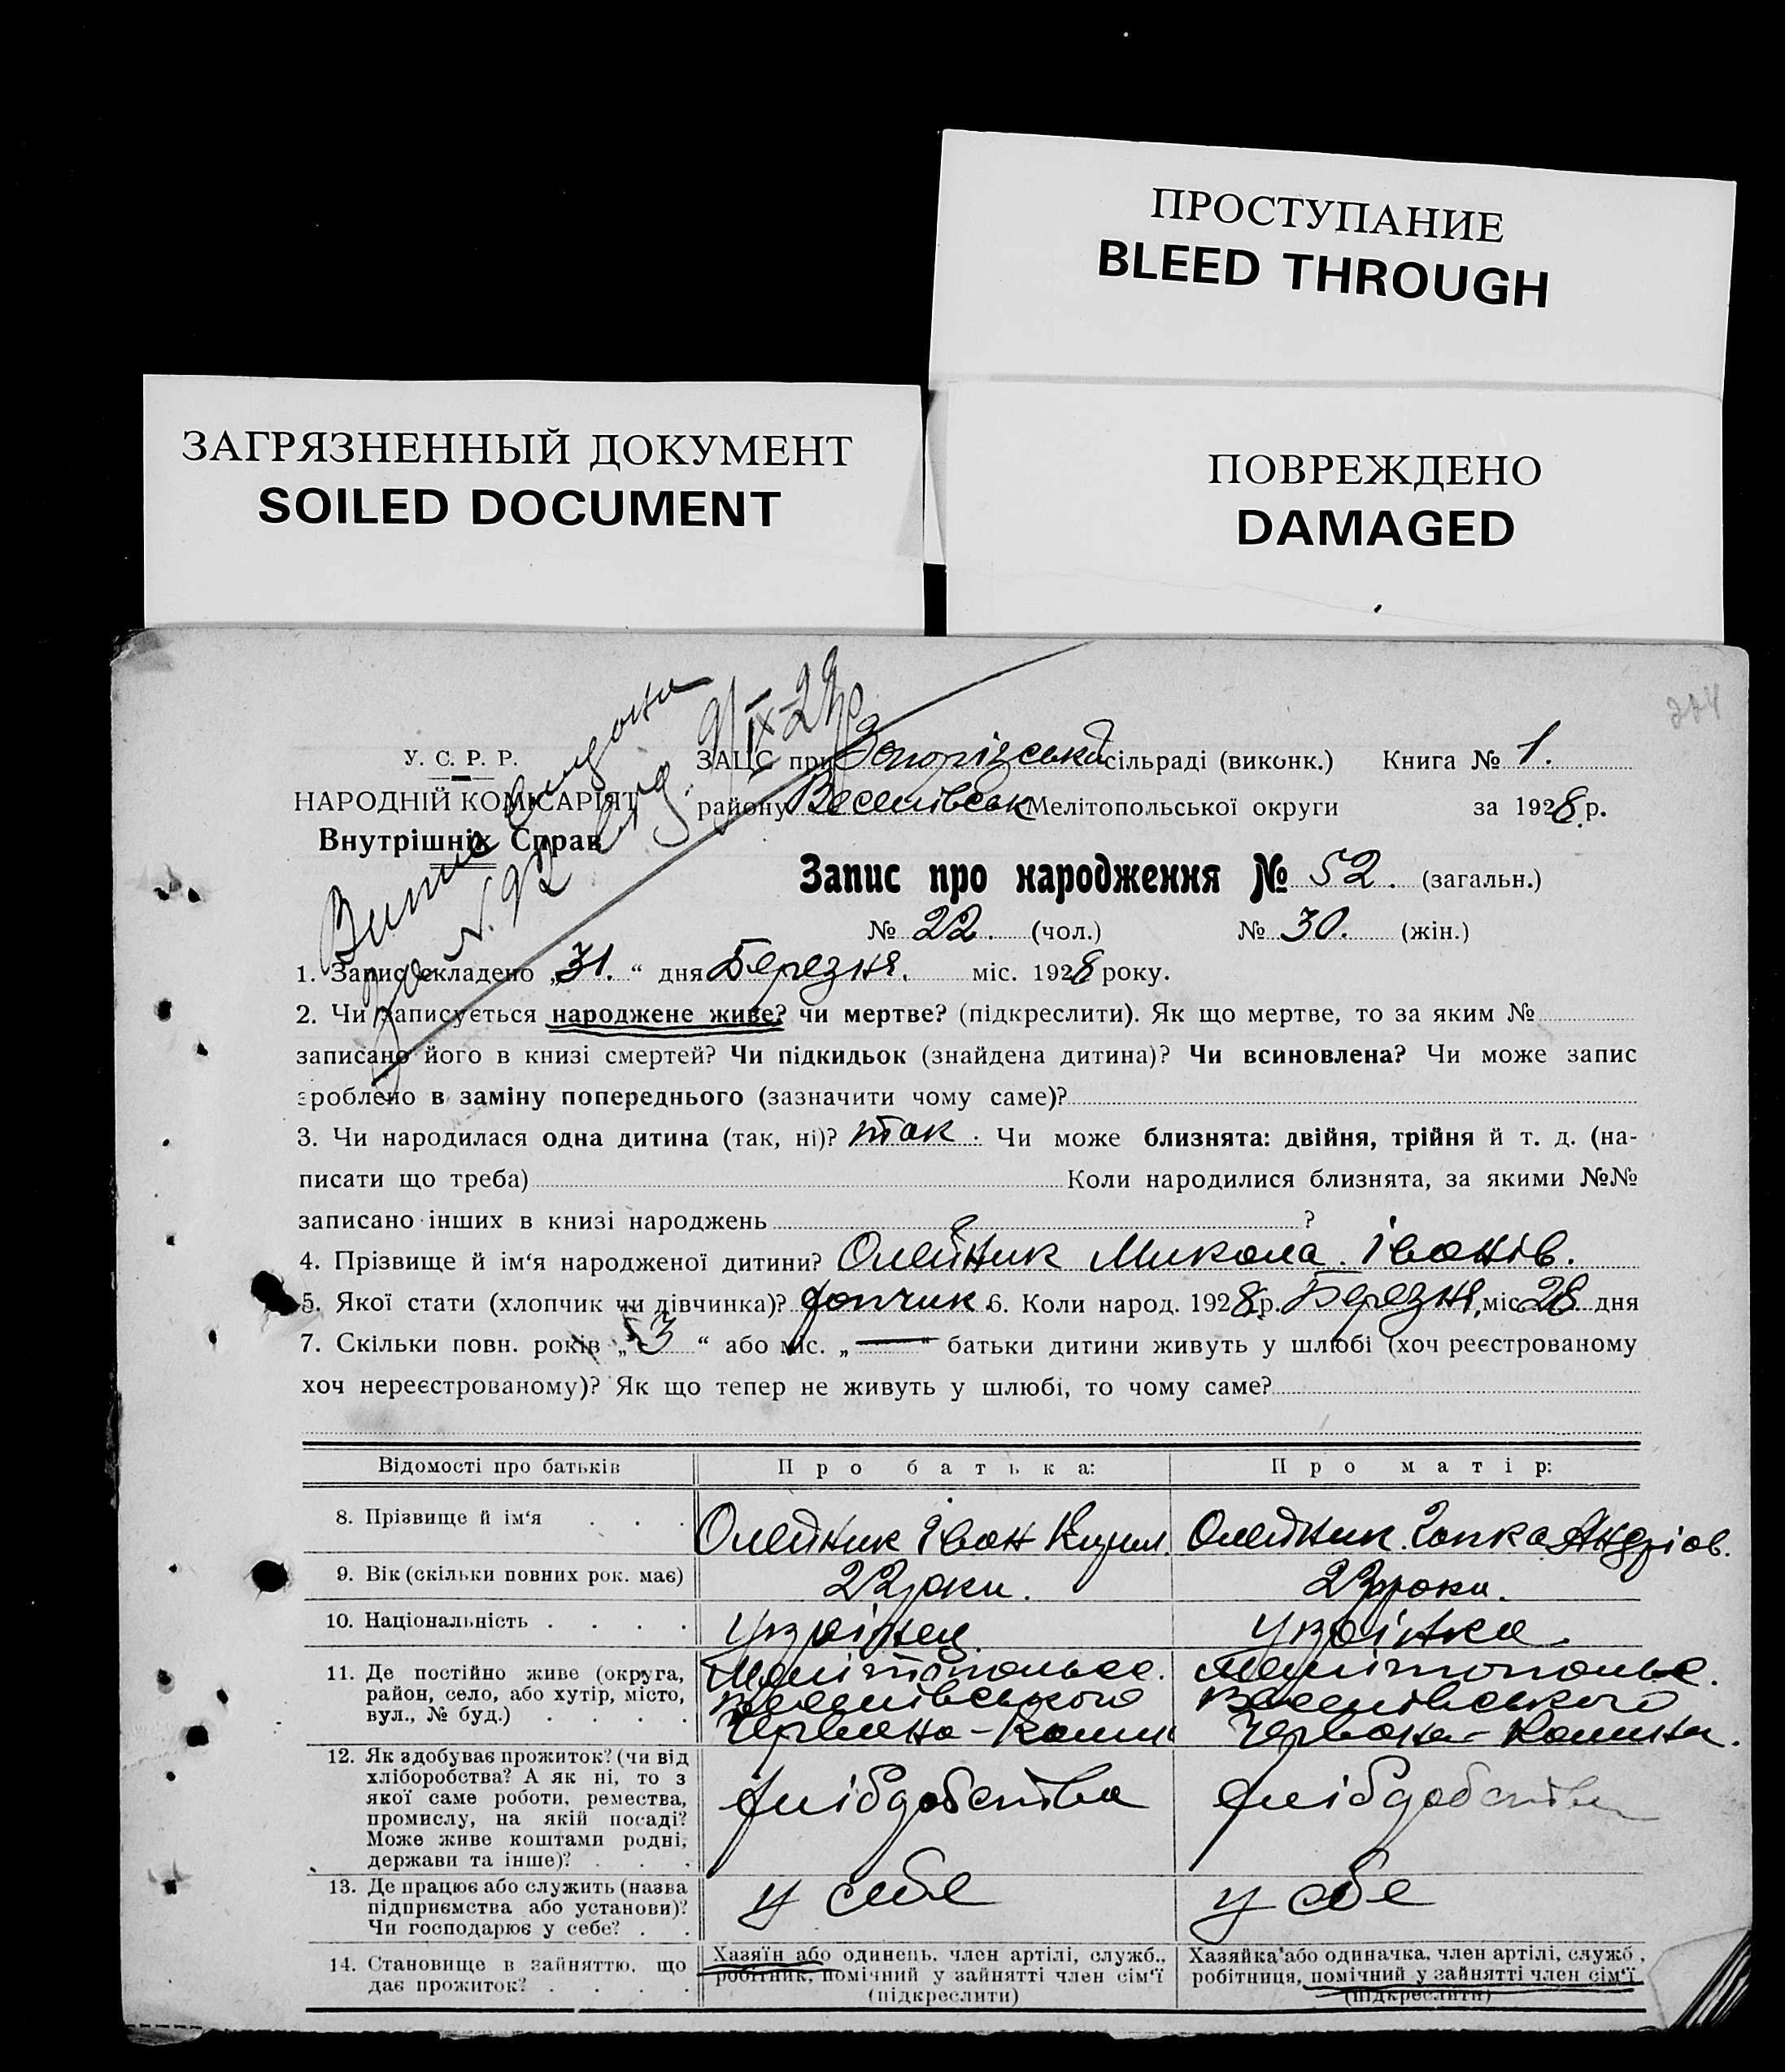 ПРОСТУПАНИЕ
BLEED THROUGH
ЗАГРЯЗНЕННЫЙ ДОКУМЕНТ
SOILED DOCUMENT
ПОВРЕЖДЕНО
DAMAGED
У. С. Р. Р.
НАРОДНІЙ КОМІСАРІЯТ
Внутрішніх Справ
ЗАЦС при Запорізській сільраді (виконк.) Книга № 1.
району Веселівськ Мелітопольської округи за 1928 р.
Запис про народження № 52. (загальн.)
№ 22. (чол.) № 30. (жін.)
1. Запис складено „31.“ дня Березня. міс. 1928 року.
2. Чи записується народжене живе? чи мертве? (підкреслити). Як що мертве, то за яким №
записано його в книзі смертей? Чи підкидьок (знайдена дитина)? Чи всиновлена? Чи може запис
зроблено в заміну попереднього (зазначити чому саме)?
3. Чи народилася одна дитина (так, ні)? так. Чи може близнята: двійня, трійня й т. д. (на-
писати що треба) Коли народилися близнята, за якими №№
записано інших в книзі народжень ?
4. Прізвище й ім‘я народженої дитини? Олейник Микола. Іванів.
5. Якої стати (хлопчик чи дівчинка)? хопчик 6. Коли народ. 1928 р. Березня, міс 28 дня
7. Скільки повн. років „3“ або міс. „—“ батьки дитини живуть у шлюбі (хоч реєстрованому
хоч нереєстрованому)? Як що тепер не живуть у шлюбі, то чому саме?
Відомості про батьків Про батька: Про матір:
8. Прізвище й ім‘я . . . Олейник Іван Кирил. Олейник Андріов.
9. Вік (скільки повних рок. має) 22 роки. 23 роки.
10. Національність . . . . Українец. Українка.
11. Де постійно живе (округа, Мелітопольсс. Мелітопольс.
район, село, або хутір, місто, Веселівського Веселівського
вул., № буд.) . . . . Червона-Комин Червона-Комина.
12. Як здобуває прожиток? (чи від
хліборобства? А як ні, то з
якої саме роботи, ремества, хлібдобства хлібдобства
промислу, на якій посаді?
Може живе коштами родні,
держави та інше)? . . .
13. Де працює або служить (назва у себе у себе
підприємства або установи)?
Чи господарює у себе? . .
14. Становище в зайняттю, що Хазяїн або одинець, член артілі, служб., Хазяйка або одиначка, член артілі, служб.,
дає прожиток? . . . . робітник, помічний у зайнятті член сім‘ї робітниця, помічний у зайнятті член сім‘ї
(підкреслити) (підкреслити)